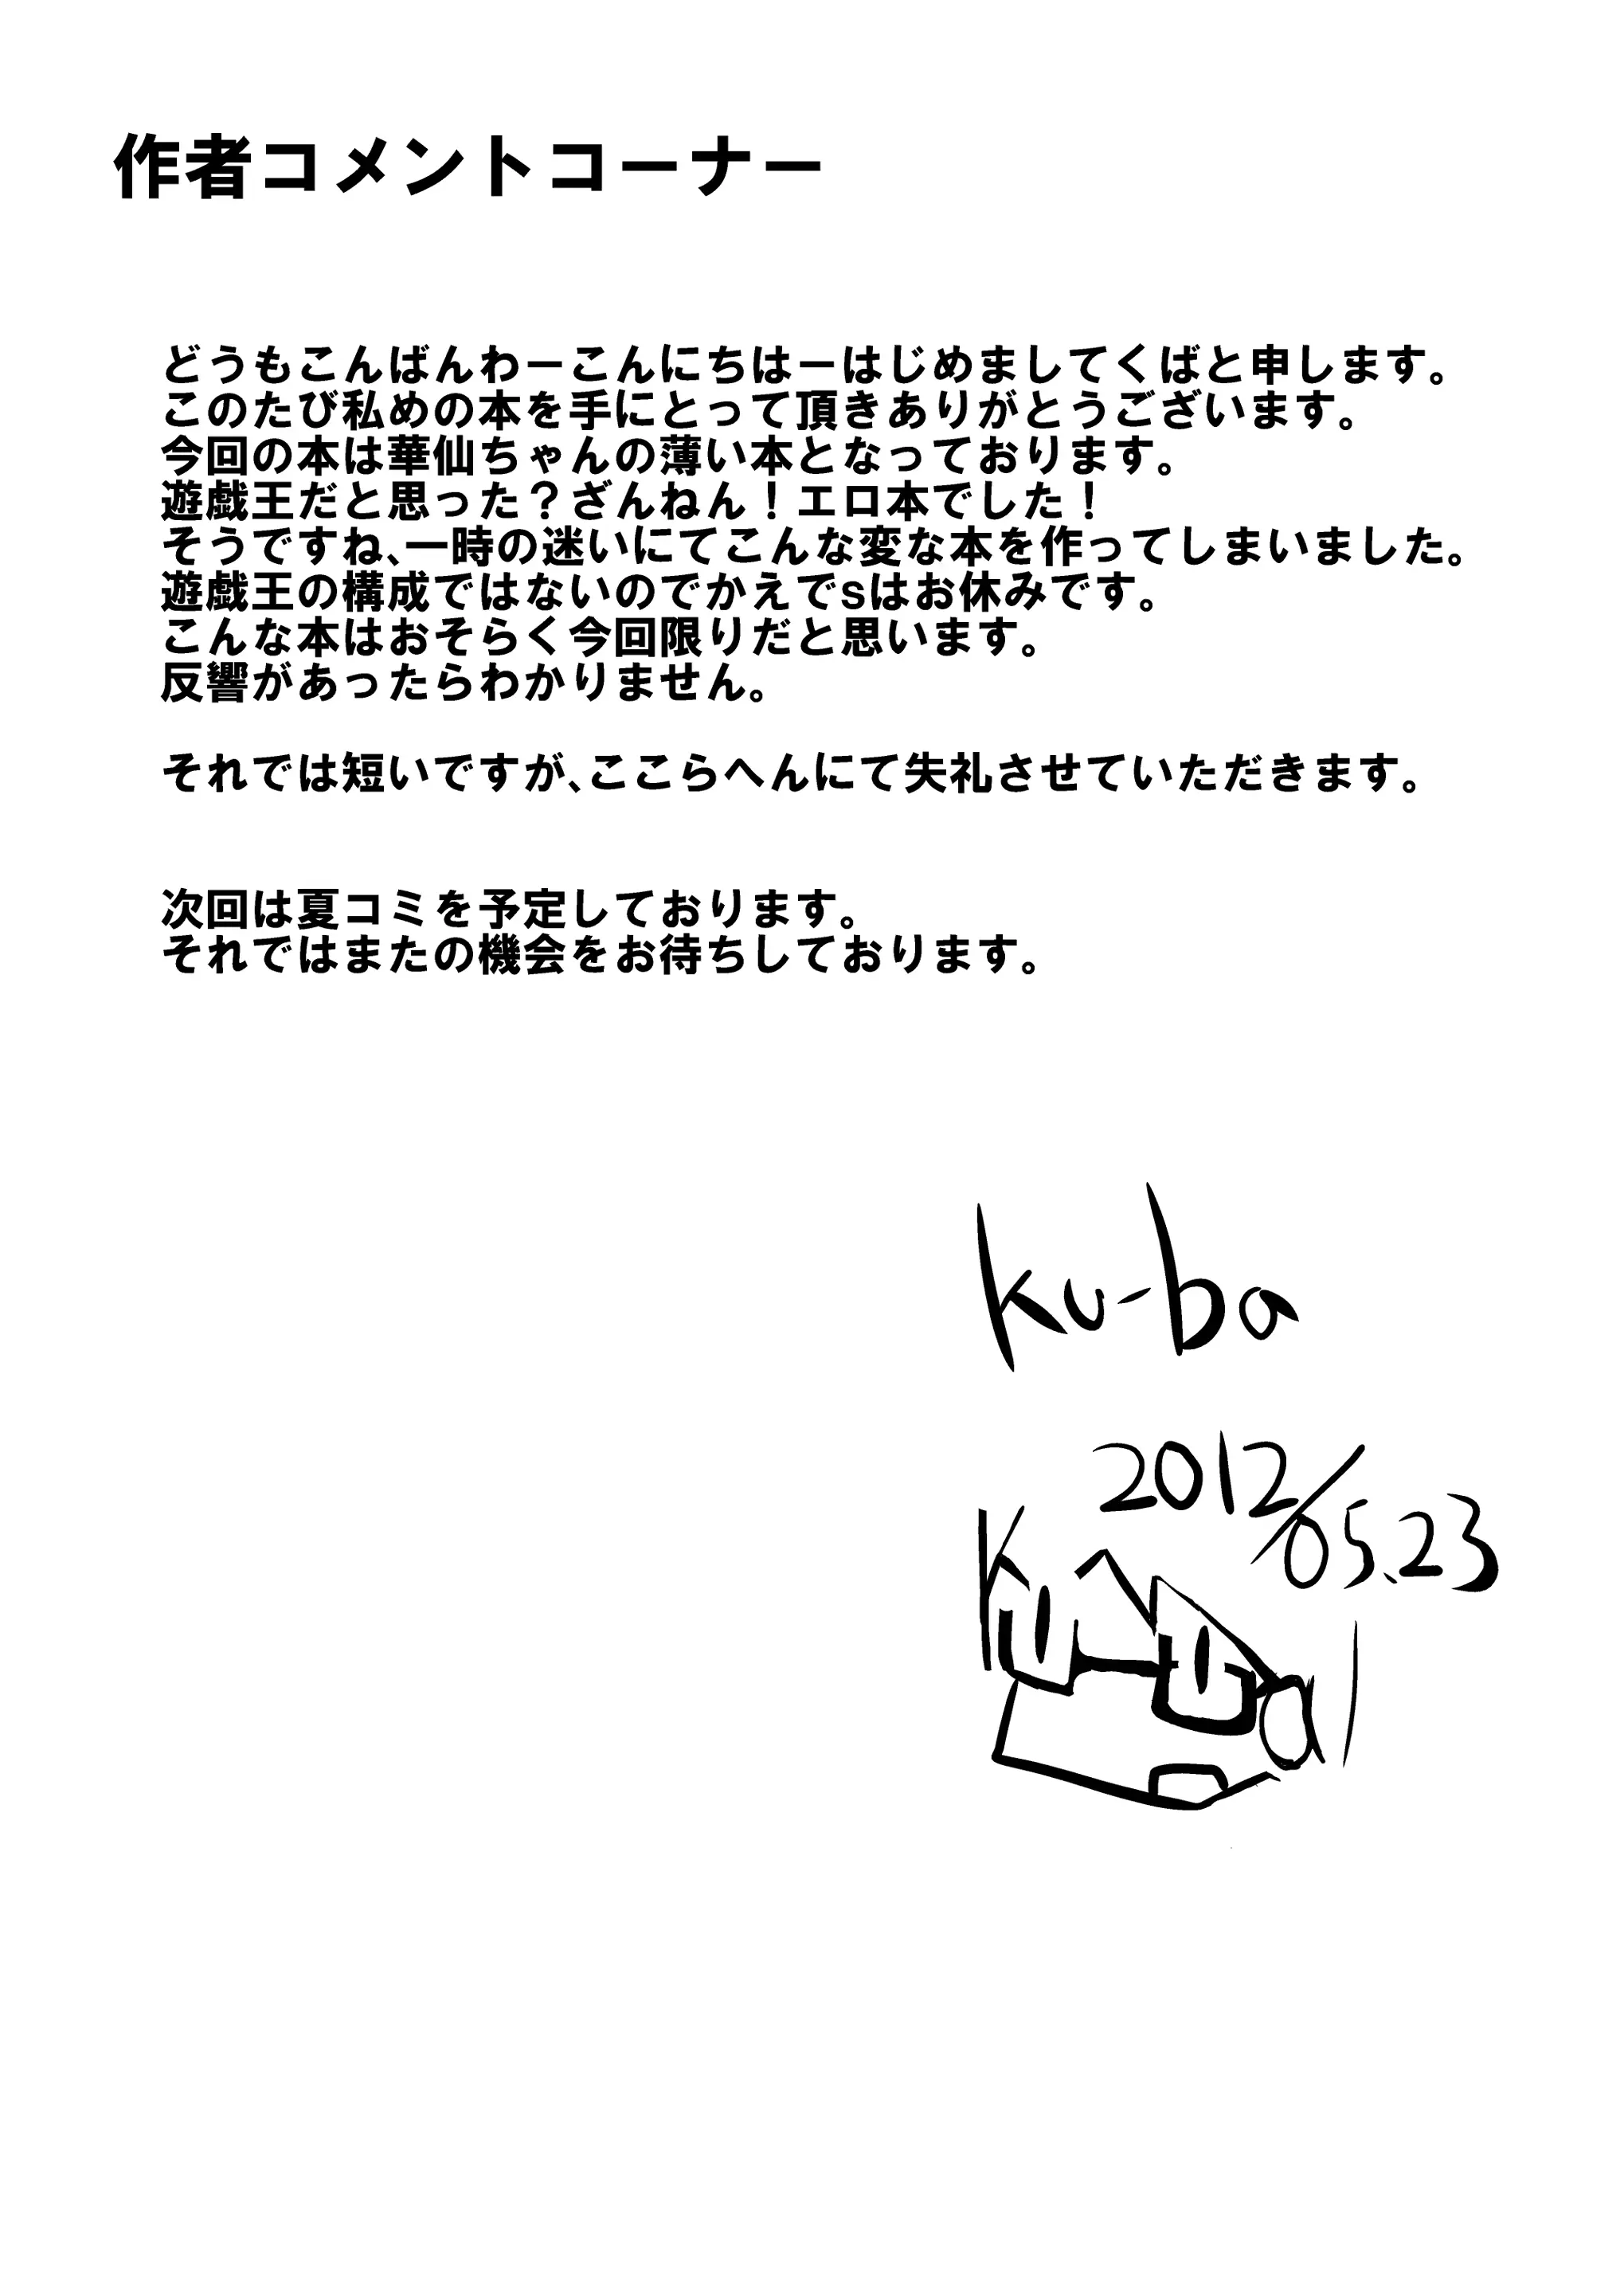 作者コメントコーナー
どうもこんばんわーこんにちはーはじめましてくばと申します。
このたび私めの本を手にとって頂きありがとうございます。
今回の本は華仙ちゃんの薄い本となっております。
遊戯王だと思った？ざんねん！エロ本でした！
そうですね、一時の迷いにてこんな変な本を作ってしまいました。
遊戯王の構成ではないのでかえでsはお休みです。
こんな本はおそらく今回限りだと思います。
反響があったらわかりません。
それでは短いですが、ここらへんにて失礼させていただきます。
次回は夏コミを予定しております。
それではまたの機会をお待ちしております。
ku-ba
2012/05.23